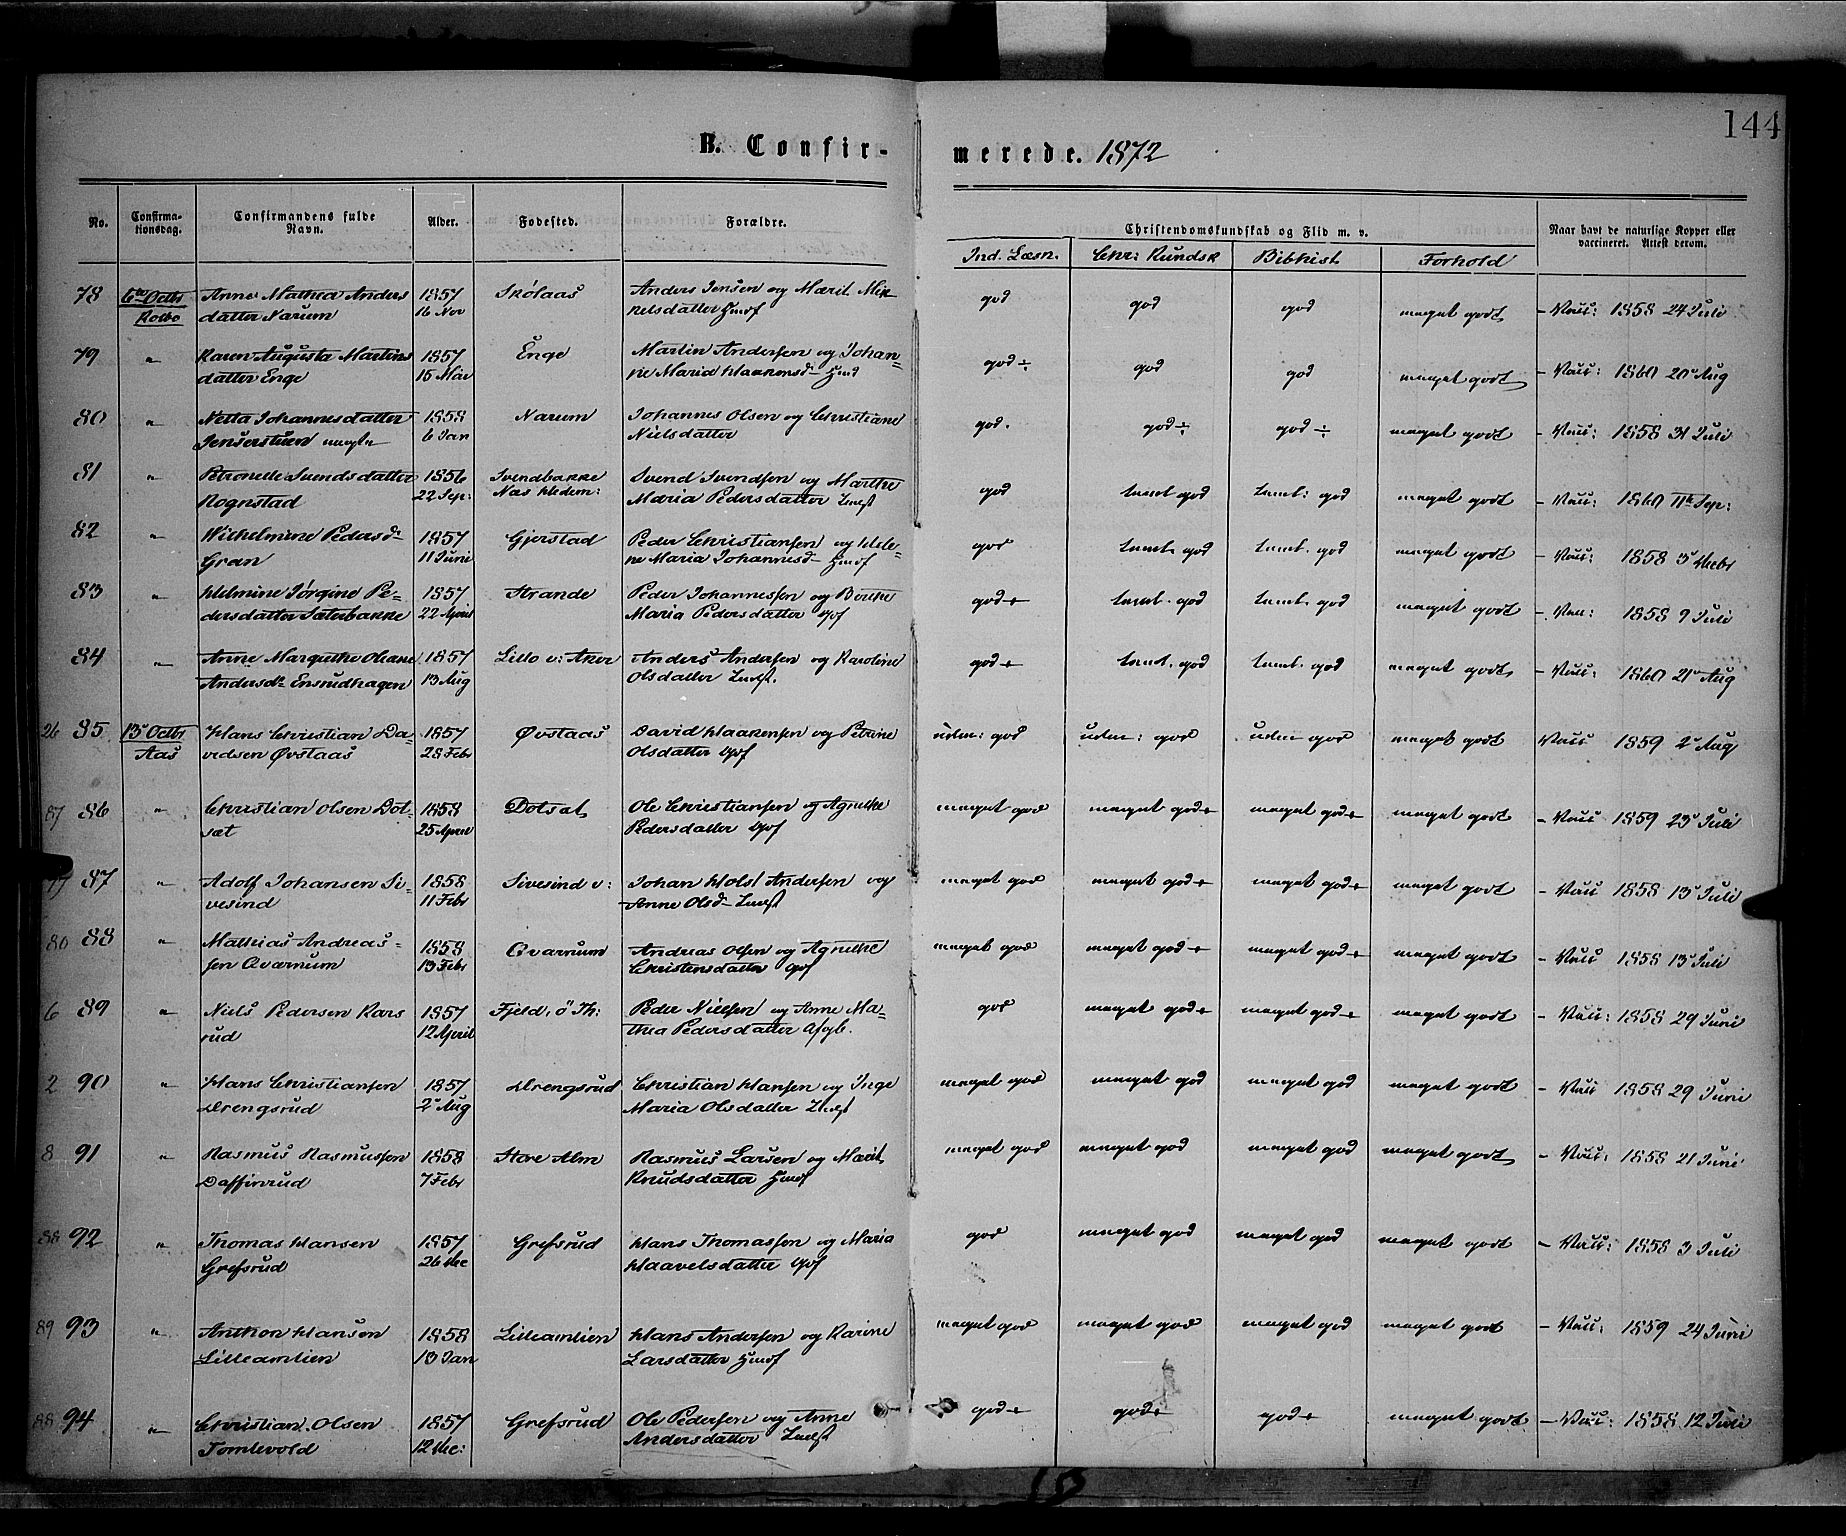 144
B. Confir- merede. 1872
No. Confirma- tionsdag. Confirmandens fulde Navn. Alder. Fødested. Forældre. Christendomskundskab og Flid m. v. Naar havt de naturlige Kopper eller vaccineret. Attest derom.
Ind. Læsn. Chr: Kundsk Bibhist Forhold
78 6te Octbr Anne Mathea Anders 1857 Skölaas Anders Jensen og Marit Mik god god god meget godt - Vacc: 1858 24 Juli
Kolbo datter Narum 16 Nov kelsdatter Husf
79 " Karen Augusta Martins 1857 Enge Martin Andersen og Johan= god ÷ god god meget godt - Vacc: 1860 20 Aug
datter Enge 15 Mar ne Maria Haakensd-
80 " Netta Johannesdatter 1858 Narum Johannes Olsen og Christiane god. god ÷ god ÷ meget godt - Vacc: 1858 31 Juli
6 Jan Nielsdatter
81 " Petronelle Svendsdatter 1856 Svendbakke Svend Svendsen og Marthe god teml god teml: god meget godt - Vacc: 1860 11te Sep:
Rognstad 22 Sep: Næs Hedem: Maria Pedersdatter Inds
82 " Wilhelmine Pedersd- 1857 Gjerstad Peder Christiansen og Hele- god teml. god teml. god meget godt - Vacc: 1858 3 Decbr
Gran 11 Juni ne Maria Johannesd- Husf
83 " Helmine Jørgine Pe- 1857 Strande Peder Johannessen og Berthe god + teml. god teml. god meget godt - Vacc: 1858 9 Juli
dersdatter Sæterbakke 22 April Maria Pedersdatter Gbf
84 " Anne Margrethe Oleane 1857 Lillo v: Aker Anders Andersen og Karoline god + teml. god teml. god meget godt - Vacc: 1860 21 Aug
Andersd- Ensrudhagen 13 Aug Olsdatter Inds.
26 85 13 Octbr Hans Christian Da- 1857 Øvstaas David Haakensen og Petrine udm: god udm: god udm god meget godt Vacc 1859 2 Aug
Aas vidsen Øvstaas 28 Febr Olsdatter Gbf
87 86 " Christian Olsen Dot- 1858 Dotsæt Ole Christiansen og Agnethe meget god meget god + meget god + meget godt - Vacc 1859 23 Juli
sæt 25 April Pedersdatter Gbf
87 " Adolf Johansen Si- 1858 Sivesind v: Johan Holst Andersen og meget god meget god + meget god + meget godt - Vacc 1858 13 Juli
vesind 11 Febr Anne Olsd- Inds
80 88 " Mathias Andreas- 1858 Qvarnum Andreas Olsen og Agnethe meget god meget god + meget god + meget godt - Vacc 1858 13 Juli
sen Qværnum 13 Febr Christensdatter Gbf
6 89 " Niels Pedersen Kars 1857 Fjeld, ö Th: Peder Nielsen og Anne Ma- god meget god + meget god + meget godt - Vacc: 1858 29 Juni
rud 12 April thea Pedersdatter Afgb.
2 90 " Hans Christiansen 1857 Drengsrud Christian Hansen og Inge meget god meget god meget god meget godt - Vacc 1858 29 Juni
Drengsrud 2 Aug Maria Olsdatter Inds
8 91 " Rasmus Rasmussen 1858 Store Alm Rasmus Larsen og Marit meget god meget god meget god meget godt - Vacc: 1858 21 Juni
Daffinrud 7 Febr Knudsdatter Husf
88 92 " Thomas Hansen 1857 Grefsrud Hans Thomassen og Maria god meget god meget god meget godt - Vacc: 1858 3 Juli
Grefsrud 26 Dec Haavelsdatter Gbf
89 93 " Anthon Hansen 1858 Lilleamlien Hans Andersen og Karine meget god meget god meget god meget godt - Vacc: 1859 24 Juni
Lilleamlien 13 Jan Larsdatter Husf
88 94 " Christian Olsen 1857 Grefsrud Ole Pedersen og Anne god + god + god + meget godt - Vacc: 1858 12 Juli
Tomlevold 12 Dec: Andersdatter Inds